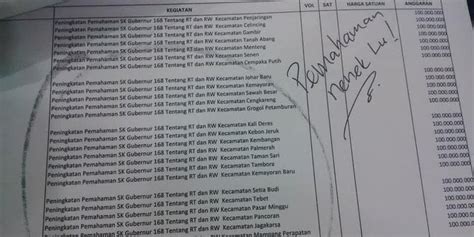 KEGIATAN VOL SAT HARGA SATUAN ANGGARAN
Peningkatan Pemahaman SK Gubernur 168 Tentang RT dan RW Kecamatan Penjaringan 100.000.000
Peningkatan Pemahaman SK Gubernur 168 Tentang RT dan RW Kecamatan Cilincing 100.000.000
Peningkatan Pemahaman SK Gubernur 168 Tentang RT dan RW Kecamatan Gambir 100.000.000
Peningkatan Pemahaman SK Gubernur 168 Tentang RT dan RW Kecamatan Tanah Abang 100.000.000
Peningkatan Pemahaman SK Gubernur 168 Tentang RT dan RW Kecamatan Menteng 100.000.000
Peningkatan Pemahaman SK Gubernur 168 Tentang RT dan RW Kecamatan Senen 100.000.000
Peningkatan Pemahaman SK Gubernur 168 Tentang RT dan RW Kecamatan Cempaka Putih 100.000.000
Peningkatan Pemahaman SK Gubernur 168 Tentang RT dan RW Kecamatan Johar Baru 100.000.000
Peningkatan Pemahaman SK Gubernur 168 Tentang RT dan RW Kecamatan Kemayoran 100.000.000
Peningkatan Pemahaman SK Gubernur 168 Tentang RT dan RW Kecamatan Sawah Besar 100.000.000
Peningkatan Pemahaman SK Gubernur 168 Tentang RT dan RW Kecamatan Cengkareng 100.000.000
Peningkatan Pemahaman SK Gubernur 168 Tentang RT dan RW Kecamatan Grogol Petamburan 100.000.000
Peningkatan Pemahaman SK Gubernur 168 Tentang RT dan RW Kecamatan Kali Deres 100.000.000
Peningkatan Pemahaman SK Gubernur 168 Tentang RT dan RW Kecamatan Kebon Jeruk 100.000.000
Peningkatan Pemahaman SK Gubernur 168 Tentang RT dan RW Kecamatan Kembangan 100.000.000
Peningkatan Pemahaman SK Gubernur 168 Tentang RT dan RW Kecamatan Palmerah 100.000.000
Peningkatan Pemahaman SK Gubernur 168 Tentang RT dan RW Kecamatan Taman Sari 100.000.000
Peningkatan Pemahaman SK Gubernur 168 Tentang RT dan RW Kecamatan Tambora 100.000.000
Peningkatan Pemahaman SK Gubernur 168 Tentang RT dan RW Kecamatan Kemayoran Baru 100.000.000
Peningkatan Pemahaman SK Gubernur 168 Tentang RT dan RW Kecamatan Setia Budi 100.000.000
Peningkatan Pemahaman SK Gubernur 168 Tentang RT dan RW Kecamatan Tebet 100.000.000
Peningkatan Pemahaman SK Gubernur 168 Tentang RT dan RW Kecamatan Pasar Minggu 100.000.000
Peningkatan Pemahaman SK Gubernur 168 Tentang RT dan RW Kecamatan Pancoran 100.000.000
Peningkatan Pemahaman SK Gubernur 168 Tentang RT dan RW Kecamatan Jagakarsa 100.000.000
Gubernur 168 Tentang RT dan RW Kecamatan Mampang Perapatan
Pemahaman
nenek Lu!